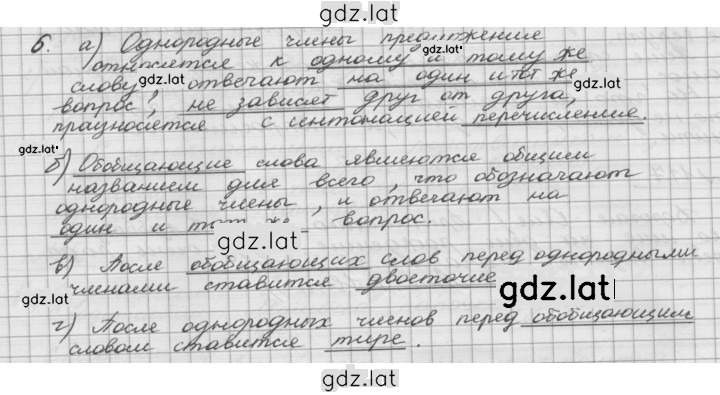 gdz.lat
6. а) Однородные члены предложения
относятся к одному и тому же
gdz.lat
слову, отвечают на один и тот же
gdz.lat
gdz.lat
вопрос, не зависят друг от друга,
произносятся с интонацией перечисления.
gdz.lat
gdz.lat
б) Обобщающие слова являются общим
названием для всего, что обозначают
однородные члены, и отвечают на
один и тот же вопрос.
gdz.lat
в) После обобщающих слов перед однородными
членами ставится двоеточие
gdz.lat
gdz.lat
г) После однородных членов перед обобщающим
словом ставится тире.
gdz.lat